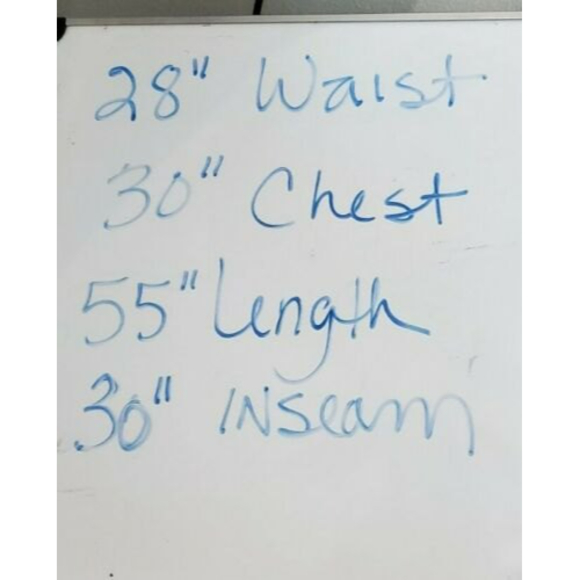 28" Waist
30" Chest
55" Length
30" INseam